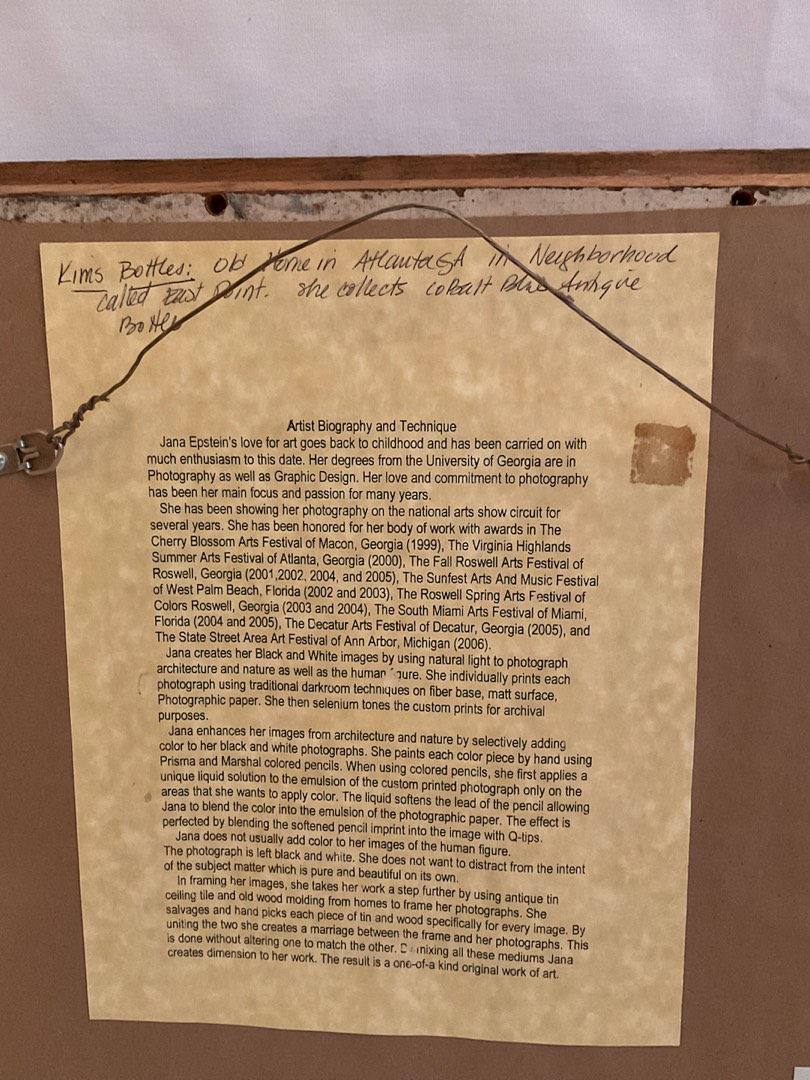 Kim's Bottles: Old Home in Atlanta GA in Neighborhood
called East Point. She collects cobalt Blue Antique
Bottles
Artist Biography and Technique
Jana Epstein's love for art goes back to childhood and has been carried on with
much enthusiasm to this date. Her degrees from the University of Georgia are in
Photography as well as Graphic Design. Her love and commitment to photography
has been her main focus and passion for many years.
She has been showing her photography on the national arts show circuit for
several years. She has been honored for her body of work with awards in The
Cherry Blossom Arts Festival of Macon, Georgia (1999), The Virginia Highlands
Summer Arts Festival of Atlanta, Georgia (2000), The Fall Roswell Arts Festival of
Roswell, Georgia (2001,2002, 2004, and 2005), The Sunfest Arts And Music Festival
of West Palm Beach, Florida (2002 and 2003), The Roswell Spring Arts Festival of
Colors Roswell, Georgia (2003 and 2004), The South Miami Arts Festival of Miami,
Florida (2004 and 2005), The Decatur Arts Festival of Decatur, Georgia (2005), and
The State Street Area Art Festival of Ann Arbor, Michigan (2006).
Jana creates her Black and White images by using natural light to photograph
architecture and nature as well as the human figure. She individually prints each
photograph using traditional darkroom techniques on fiber base, matt surface,
Photographic paper. She then selenium tones the custom prints for archival
purposes.
Jana enhances her images from architecture and nature by selectively adding
color to her black and white photographs. She paints each color piece by hand using
Prisma and Marshal colored pencils. When using colored pencils, she first applies a
unique liquid solution to the emulsion of the custom printed photograph only on the
areas that she wants to apply color. The liquid softens the lead of the pencil allowing
Jana to blend the color into the emulsion of the photographic paper. The effect is
perfected by blending the softened pencil imprint into the image with Q-tips.
Jana does not usually add color to her images of the human figure.
The photograph is left black and white. She does not want to distract from the intent
of the subject matter which is pure and beautiful on its own.
In framing her images, she takes her work a step further by using antique tin
ceiling tile and old wood molding from homes to frame her photographs. She
salvages and hand picks each piece of tin and wood specifically for every image. By
uniting the two she creates a marriage between the frame and her photographs. This
is done without altering one to match the other. mixing all these mediums Jana
creates dimension to her work. The result is a one-of-a kind original work of art.